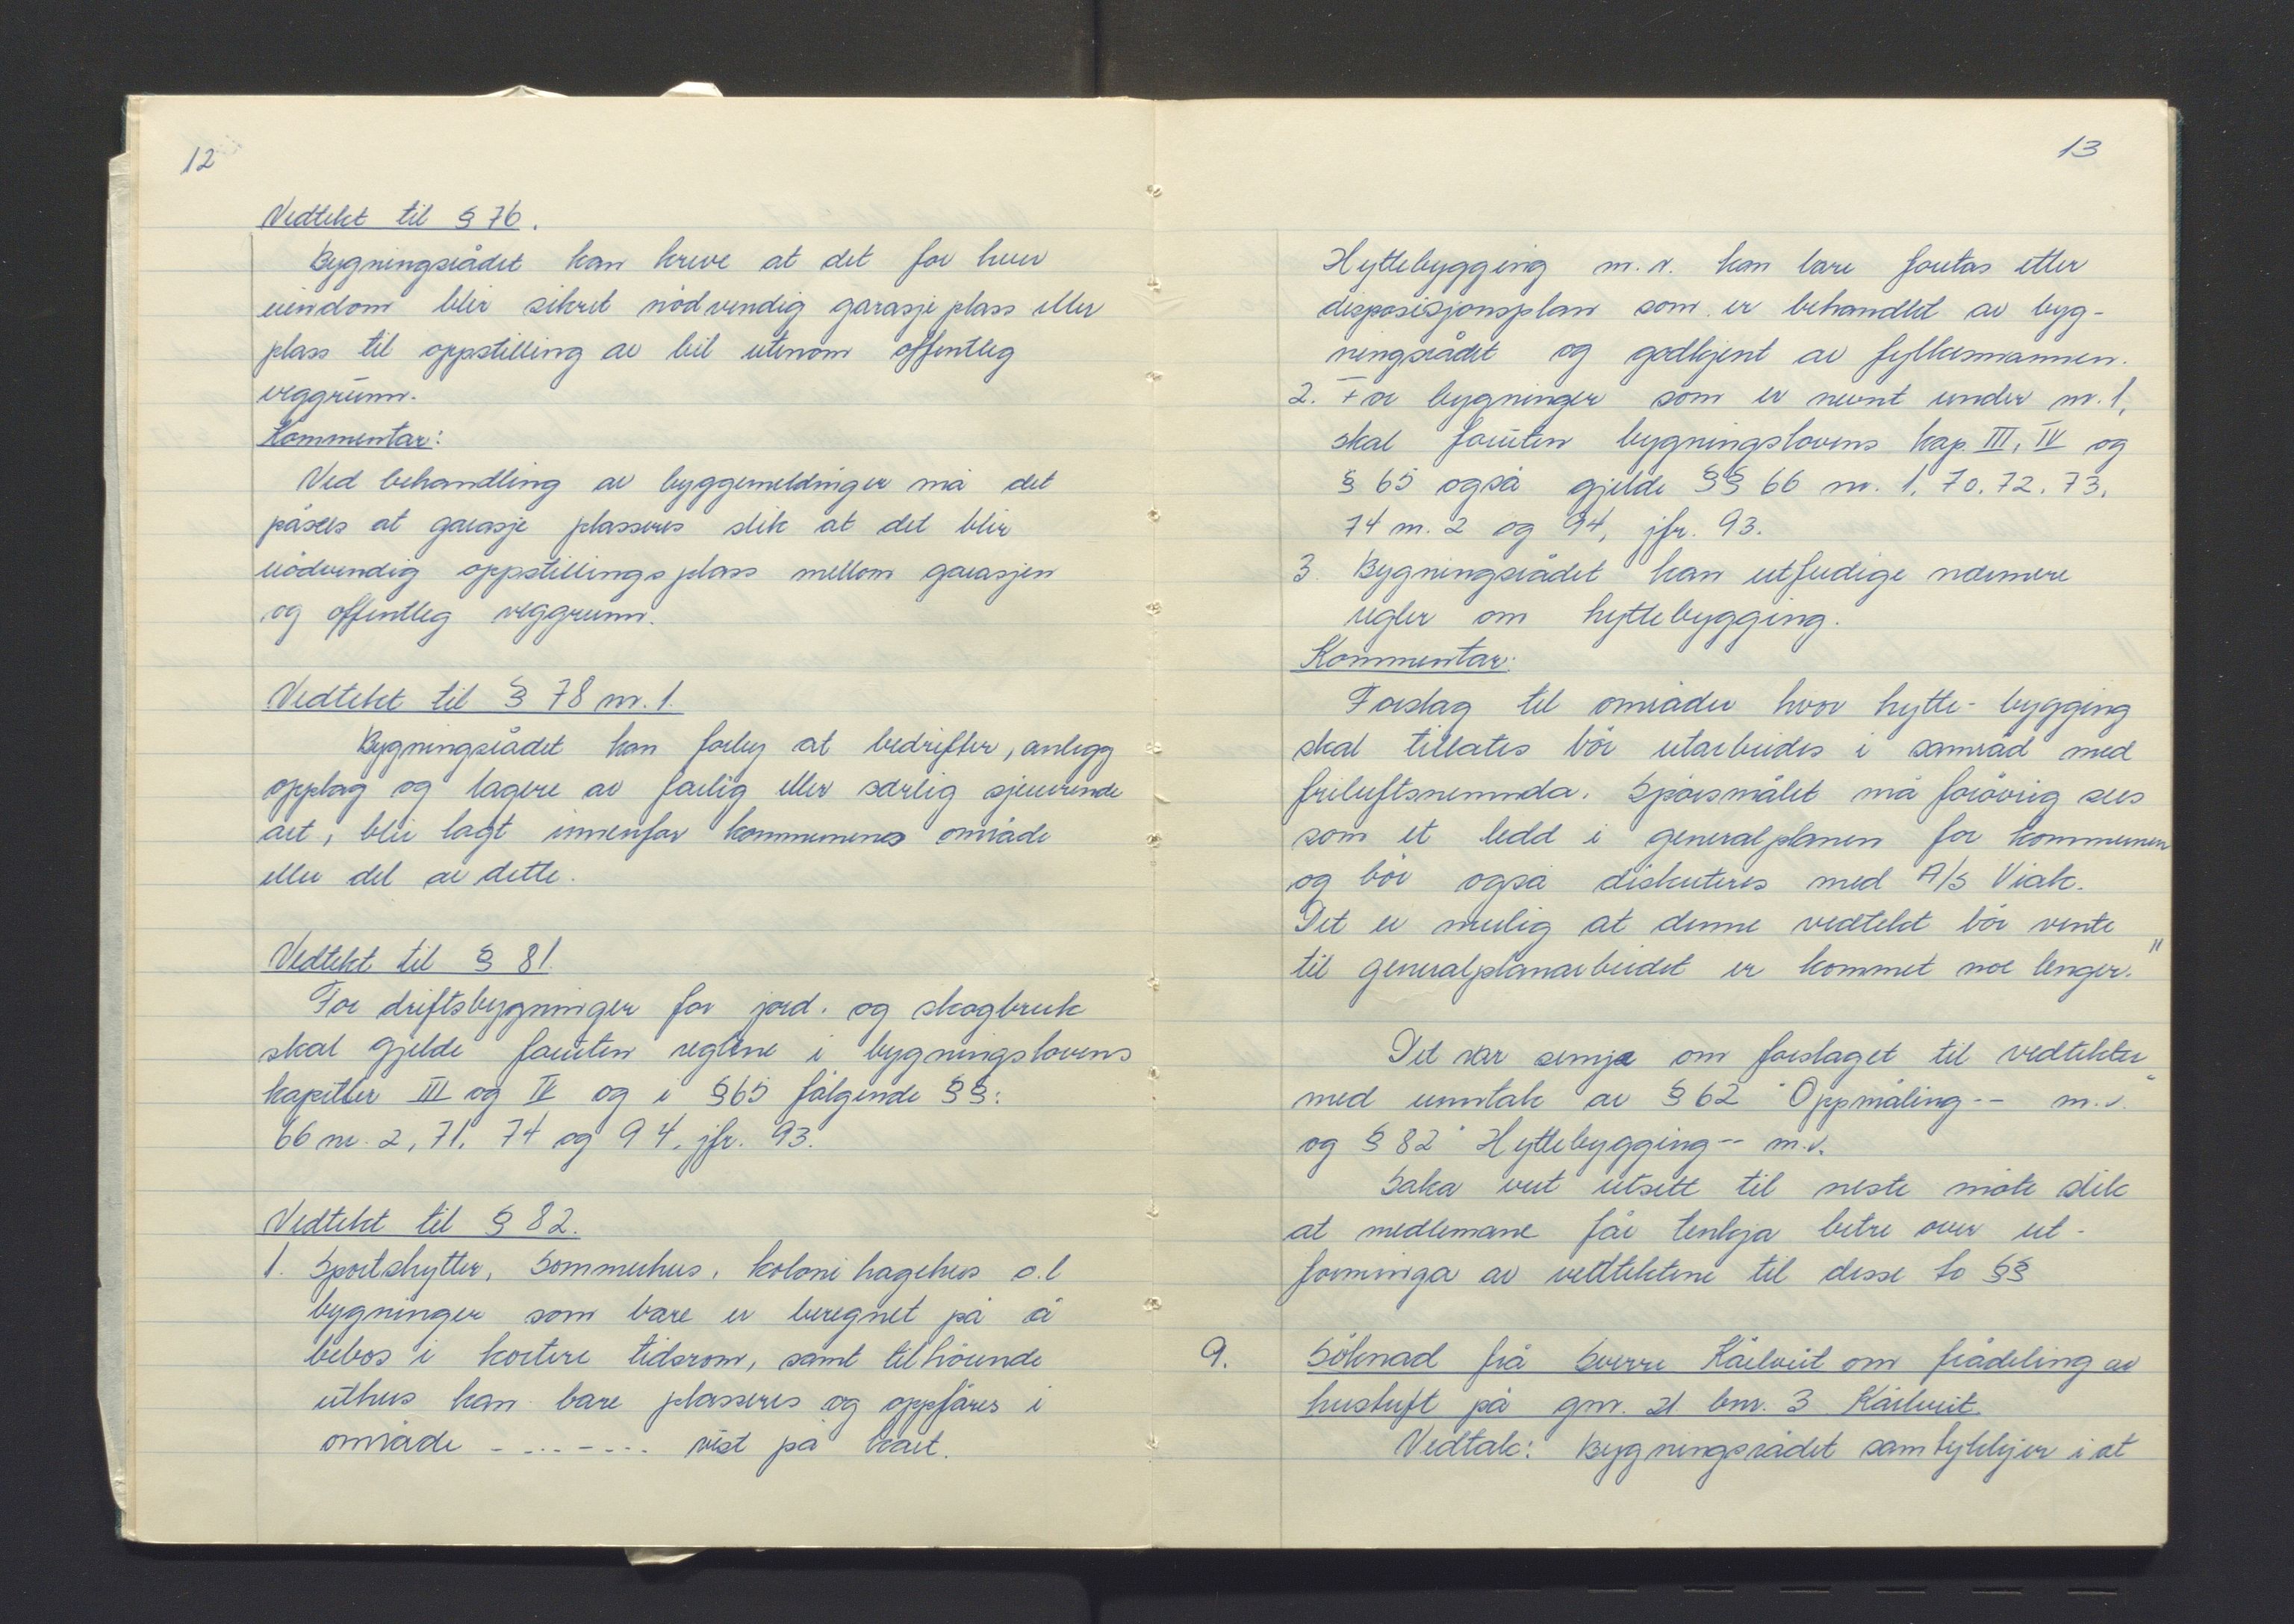 12
Vedtekt til § 76.
Bygningsrådet kan kreve at det for hver
eiendom blir sikret nödvendig garasjeplass eller
plass til oppstilling av bil utenom offentleg
veggrunn.
Kommentar:
Ved behandling av byggemeldinger må det
påsees at garasje plasseres slik at det blir
nödvendig oppstillingsplass mellom garasjen
og offentleg veggrunn.
Vedtekt til § 78 nr. 1.
Bygningsrådet kan forby at bedrifter, anlegg
opplag og lagere av farlig eller særlig sjenerende
art, blir lagt innenfor kommunens område
eller del av dette.
Vedtekt til § 81.
For driftsbygninger for jord. og skogbruk
skal gjelde foruten reglene i bygningslovens
kapitler III og IV og i § 65 fölgende §§:
66 nr. 2, 71, 74 og 94, jfr. 93.
Vedtekt til § 82.
1. Sportshytter, Sommerhus, kolonihagehus o.l
bygninger som bare er beregnet på å
bebos i kortere tidsrom, samt tilhörende
uthus kan bare plasseres og oppföres i
område - ... - ... vist på kart.
13
Hyttebygging m.v. kan bare foretas etter
disposisjonsplan som er behandlet av byg-
ningsrådet og godkjent av fylkesmannen.
2. For bygninger som er nevnt under nr. 1,
skal foruten bygningslovens kap. III, IV og
§ 65 også gjelde §§ 66 nr. 1, 70, 72, 73,
74 nr. 2 og 94, jfr. 93.
3. Bygningsrådet kan utferdige nærmere
regler om hyttebygging.
Kommentar:
Forslag til områder hvor hytte-bygging
skal tillates bör utarbeides i samråd med
friluftsnemnda. Spörsmålet må foröverig sees
som et ledd i generalplanen for kommunen
og bör også diskuteres med A/S Viak.
Det er mulig at denne vedtekt bör vente
til generalplanarbeidet er kommet noe lenger."
Det var semje om forslaget til vedtekter
med unntak av § 62 "Oppmåling -- m.v."
og § 82 "Hyttebygging -- m.v.
Saka vert utsett til neste möte slik
at medlemane får tenkja betre over ut-
forminga av vedtektene til desse to §§
9. Söknad frå Sverre Kårlveit om frådeling av
hustuft på gnr. 21 bnr. 3 Kårlveit.
Vedtak: Bygningsrådet samtykkjer i at